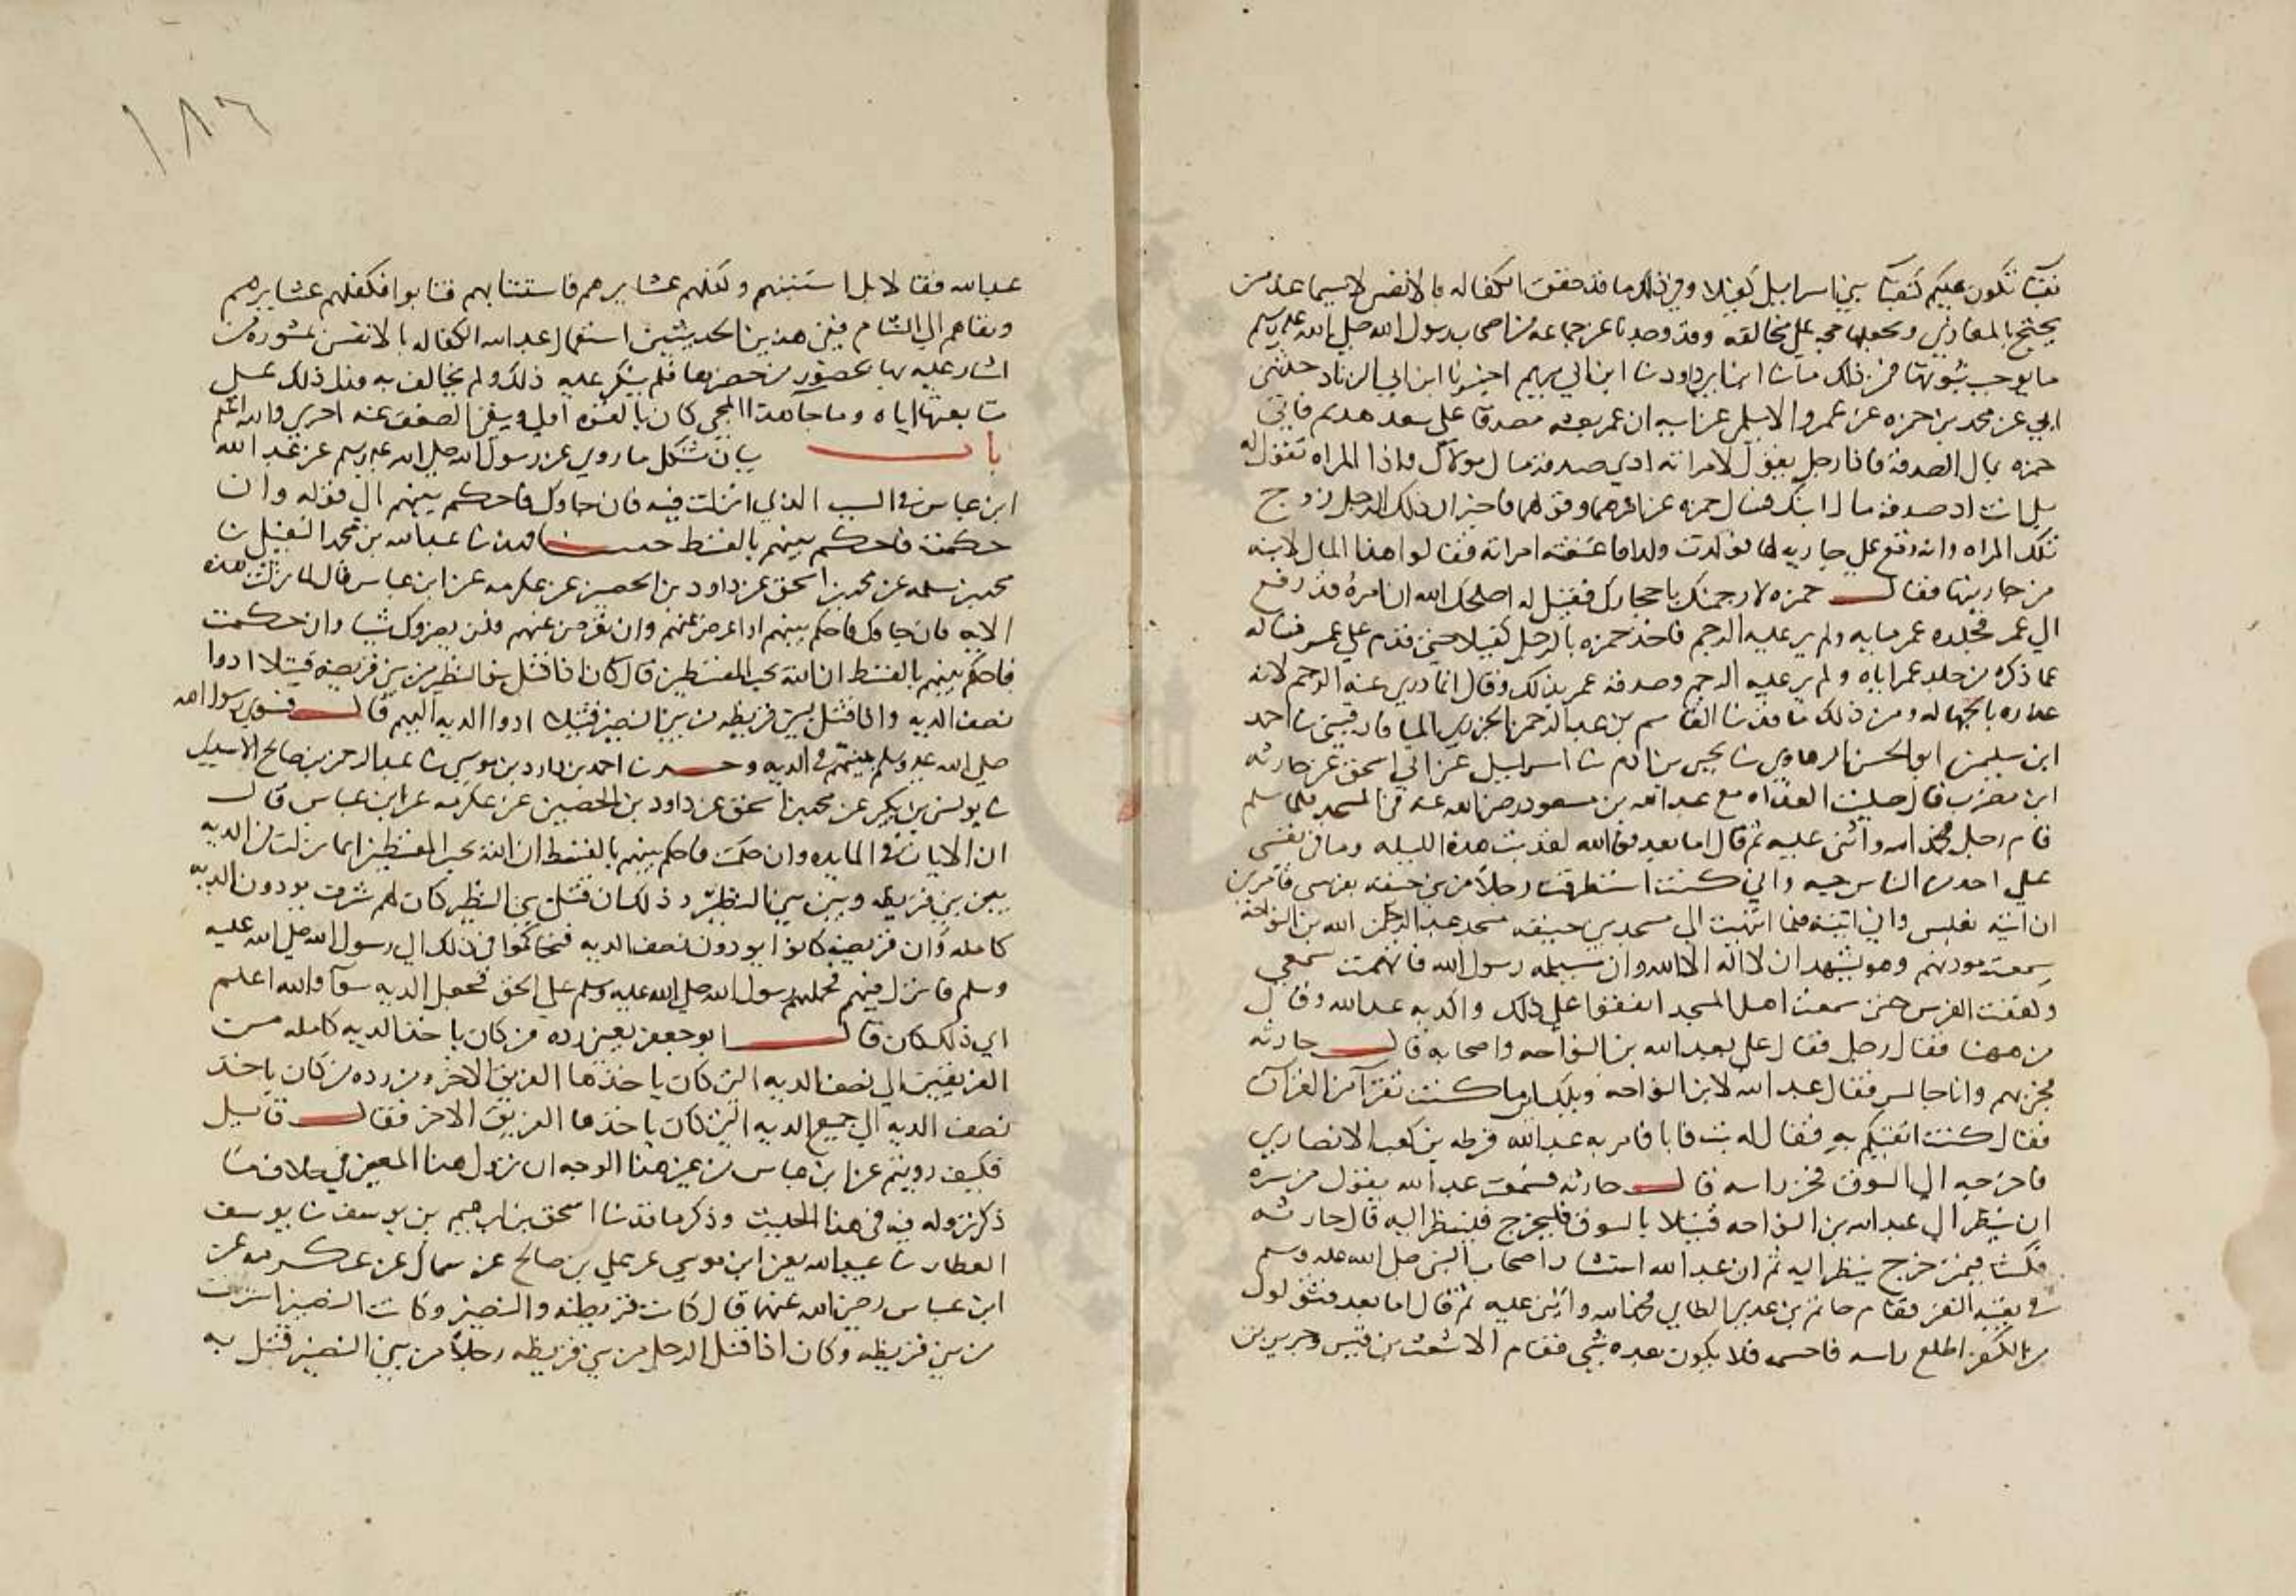 نقبا تكون عليكم كنقبا بني اسرايل كفيلا وفي ذلك ما قد حقق الكفاله بالانفس لا سيما عند من
يحتج بالمغازي ويجعلها حجه على مخالفه وقد وجدنا عن جماعه من اصحاب رسول الله صلى الله عليه وسلم
ما يوجب ثبوتها فمن ذلك ما نا ابن ابي داود نا ابن ابي مريم اخبرنا ابن ابي الزناد حدثني
ابي عن محمد بن حمزه بن عمرو الاسلمي عن ابيه ان عمر بعثه مصدقا على سعد هديم فاتي
حمزه بمال الصدقه فاذا رجل يقول لامراته ادي صدقه مال مولاك واذا المراه تقول له
بل انت اد صدقه مال ابنك فسال حمزه عن امرهما وقولهما فاخبر ان ذلك الرجل زوج
تلك المراه وانه وقع على جاريه لها فولدت ولدا فاعتقته امراته فقالوا هذا المال لابنه
من جاريتها فقال حمزه لارجمنك باحجارك فقيل له اصلحك الله ان امره قد رفع
الى عمر فجلده عمر مايه ولم ير عليه الرجم فاخذ حمزه بالرجل كفيلا حتى قدم على عمر فساله
عما ذكره من جلد عمر اياه ولم ير عليه الرجم وصدقه عمر بذلك وقال انما دري عنه الرجم لانه
عذره بالجهاله ومن ذلك ما قد نا القاسم بن عبد الرحمن الجزري الميافارقيني نا احمد
ابن سليمن ابو الحسن الرهاوي نا يحيى بن ادم نا اسرايل عن ابي اسحق عن حارثه
ابن مضرب قال صليت الغداه مع عبد الله بن مسعود رضي الله عنه في المسجد فلما سلم
قام رجل فحمد الله واثنى عليه ثم قال اما بعد فوالله لقد بت هذه الليله وما في نفسي
على احد من الناس حيه واني كنت استطرقت رجلا من بني حنيفه لفرسي فامرني
ان اتيه بغلس واني اتيته فلما انتهيت الى مسجد بني حنيفه مسجد عبد الله بن النواحه
سمعت موذنهم وهو يشهد ان لا اله الا الله وان مسيلمه رسول الله فاتهمت سمعي
وكففت الفرس حتى سمعت اهل المسجد اتفقوا على ذلك فاكذبه عبد الله وقال
من ههنا فقال رجل فقال علي بعبد الله بن النواحه واصحابه قال حارثه
فجي بهم وانا جالس فقال عبد الله لابن النواحه ويلك اين ما كنت تقرا من القران
فقال كنت اتقيكم به فقال له تب فابى فامر به عبد الله قرظه بن كعب الانصاري
فاخرجه الى السوق فجز راسه قال حارثه فسمعت عبد الله يقول من سره
ان ينظر الى عبد الله بن النواحه قتيلا بالسوق فليخرج فلينظر اليه قال حارثه
فكنت فيمن خرج ينظر اليه ثم ان عبد الله استشار اصحاب النبي صلى الله عليه وسلم
في بقيه النفر فقام عدي بن حاتم الطاي فحمد الله واثنى عليه ثم قال اما بعد فثولول
من الكفر اطلع راسه فاحسمه فلا يكون بعده شي فقام الاشعث بن قيس وجرير بن
١٨٦
عبد الله فقالا بل استتبهم وكفلهم عشايرهم فاستتابهم فتابوا فكفلهم عشايرهم
ونفاهم الى الشام ففي هذين الحديثين استعمال عبد الله الكفاله بالانفس بمشوره من
اشار عليه بها بحضور من حضرها فلم ينكر عليه ذلك ولم يخالف به فدل ذلك على
متابعتها اياه وما جا هذا المجي كان بالقوه اولى وبنفي الضعف عنه احرى والله اعلم
باب بيان مشكل ما روي عن رسول الله صلى الله عليه وسلم عن عبد الله
ابن عباس في السبب الذي انزلت فيه فان جاوك فاحكم بينهم الى قوله وان
حكمت فاحكم بينهم بالقسط حدثنا فهد نا عبد الله بن محمد النفيلي نا
محمد بن سلمه عن محمد بن اسحق عن داود بن الحصين عن عكرمه عن ابن عباس قال لما نزلت هذه
الايه فان جاوك فاحكم بينهم او اعرض عنهم وان تعرض عنهم فلن يضروك شيا وان حكمت
فاحكم بينهم بالقسط ان الله يحب المقسطين قال كان اذا قتل بنو النظير من بني قريضه قتيلا ادوا
نصف الديه واذا قتل بنو قريظه من بني النضير قتيلا ادوا الديه اليهم قال فسوى رسول الله
صلى الله عليه وسلم بينهم في الديه وحدثنا احمد بن داود بن موسى نا عبد الرحمن بن صالح الازدي
نا يونس بن بكير عن محمد بن اسحق عن داود بن الحصين عن عكرمه عن ابن عباس قال
ان الايات في المايده وان حكمت فاحكم بينهم بالقسط ان الله يحب المقسطين انما نزلت في الديه
بين بني قريظه وبين بني النظير وذلك ان قتلى بني النظير كان لهم شرف يودون الديه
كامله وان قريضه كانوا يودون نصف الديه فتحاكموا في ذلك الى رسول الله صلى الله عليه
وسلم فانزل فيهم فحملهم رسول الله صلى الله عليه وسلم على الحق فجعل الديه سوآ والله اعلم
اي ذلك كان قال ابو جعفر يعني رده من كان ياخذ الديه كامله من
الفريقين الى نصف الديه التي كان ياخذها الفريق الاخر ومن رده من كان ياخذ
نصف الديه الى جميع الديه التي كان ياخذها الفريق الاخر فقال قايل
فكيف رويتم عن ابن عباس من غير هذا الوجه ان نزول هذا المعنى في خلاف ما
ذكر نزوله فيه في هذا الحديث وذكر ما قد نا اسحق بن ابرهيم بن يوسف نا يوسف
العطار نا عبيد الله يعني ابن موسى عن علي بن صالح عن سماك عن عكرمه عن
ابن عباس رضي الله عنهما قال كانت قريظه والنضير وكانت النضير اشرف
من بني قريظه وكان اذا قتل الرجل من بني قريظه رجلا من بني النضير قتل به